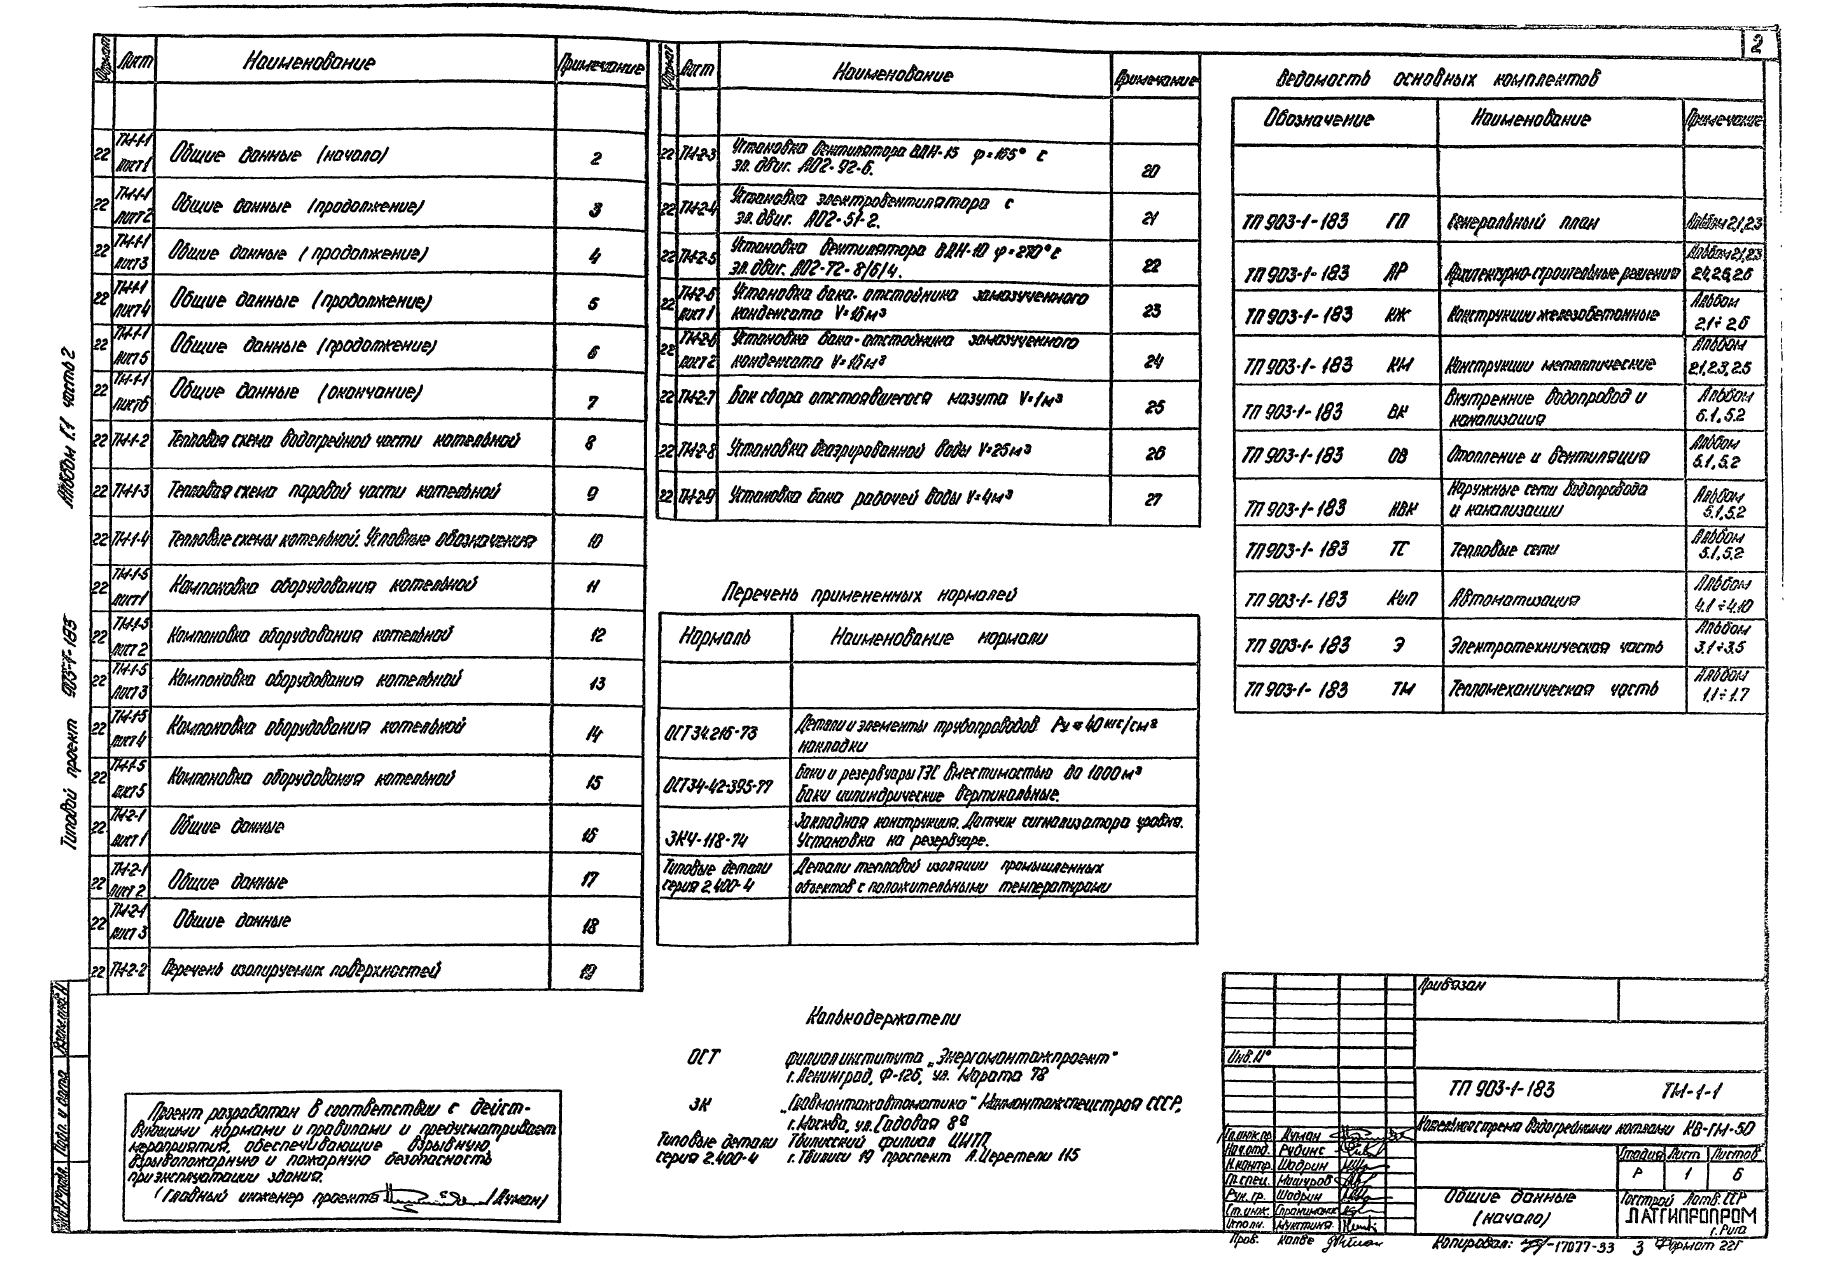 2
Формат Лист Наименование Примечание
22 ТМ-1-1 лист 1 Общие данные (начало) 2
22 ТМ-1-1 лист 2 Общие данные (продолжение) 3
22 ТМ-1-1 лист 3 Общие данные (продолжение) 4
22 ТМ-1-1 лист 4 Общие данные (продолжение) 5
22 ТМ-1-1 лист 5 Общие данные (продолжение) 6
22 ТМ-1-1 лист 6 Общие данные (окончание) 7
22 ТМ-1-2 Тепловая схема водогрейной части котельной 8
22 ТМ-1-3 Тепловая схема паровой части котельной 9
22 ТМ-1-4 Тепловые схемы котельной. Условные обозначения 10
22 ТМ-1-5 лист 1 Компоновка оборудования котельной 11
22 ТМ-1-5 лист 2 Компоновка оборудования котельной 12
22 ТМ-1-5 лист 3 Компоновка оборудования котельной 13
22 ТМ-1-5 лист 4 Компоновка оборудования котельной 14
22 ТМ-1-5 лист 5 Компоновка оборудования котельной 15
22 ТМ-2-1 лист 1 Общие данные 16
22 ТМ-2-1 лист 2 Общие данные 17
22 ТМ-2-1 лист 3 Общие данные 18
22 ТМ-2-2 Перечень изолируемых поверхностей 19
Формат Лист Наименование Примечание
22 ТМ-2-3 Установка вентилятора ВДН-15 φ=165° с
эл. двиг. АО2-92-6. 20
22 ТМ-2-4 Установка электровентилятора с
эл. двиг. АО2-51-2. 21
22 ТМ-2-5 Установка вентилятора ВДН-10 φ=270° с
эл. двиг. АО2-72-8/6/4. 22
22 ТМ-2-6 лист 1 Установка бака-отстойника замазученного
конденсата V=16м³ 23
22 ТМ-2-6 лист 2 Установка бака-отстойника замазученного
конденсата V=16м³ 24
22 ТМ-2-7 Бак сбора отстоявшегося мазута V=1м³ 25
22 ТМ-2-8 Установка деаэрированной воды V=25м³ 26
22 ТМ-2-9 Установка бака рабочей воды V=4м³ 27
Перечень примененных нормалей
Нормаль Наименование нормали
ОСТ34.216-73 Детали и элементы трубопроводов Ру≤40кгс/см²
накладки
ОСТ34-42-395-77 Баки и резервуары ТЭС вместимостью до 1000м³
Баки цилиндрические вертикальные.
ЗК4-118-74 Закладная конструкция. Датчик сигнализатора уровня.
Установка на резервуаре.
Типовые детали серия 2.400-4 Детали тепловой изоляции промышленных
объектов с положительными температурами
Ведомость основных комплектов
Обозначение Наименование Примечание
ТП 903-1-183 ГП Генеральный план Альбом 2.1, 2.3
ТП 903-1-183 АР Архитектурно-строительные решения Альбом 2.1, 2.3 2.4, 2.5, 2.6
ТП 903-1-183 КЖ Конструкции железобетонные Альбом 2.1÷2.6
ТП 903-1-183 КМ Конструкции металлические Альбом 2.1, 2.3, 2.5
ТП 903-1-183 ВК Внутренние водопровод и
канализация Альбом 5.1, 5.2
ТП 903-1-183 ОВ Отопление и вентиляция Альбом 5.1, 5.2
ТП 903-1-183 НВК Наружные сети водопровода
и канализации Альбом 5.1, 5.2
ТП 903-1-183 ТС Тепловые сети Альбом 5.1, 5.2
ТП 903-1-183 КиП Автоматизация Альбом 4.1÷4.10
ТП 903-1-183 Э Электротехническая часть Альбом 3.1÷3.5
ТП 903-1-183 ТМ Тепломеханическая часть Альбом 1.1÷1.7
Альбом 1.1 часть 2
Типовой проект 903-1-183
Взам. инв. №
Подп. и дата
Проект разработан в соответствии с дейст-
вующими нормами и правилами и предусматривает
мероприятия, обеспечивающие взрывную,
взрывопожарную и пожарную безопасность
при эксплуатации здания.
Главный инженер проекта (Думан)
Калькодержатели
ОСТ филиал института „Энергомонтажпроект"
г. Ленинград, Ф-126, ул. Марата 78
ЗК „Главмонтажавтоматика" Минмонтажспецстроя СССР,
г. Москва, ул. Садовая 8ª
Типовые детали Тбилисский филиал ЦИТП
серия 2.400-4 г. Тбилиси 19 проспект А. Церетели 115
Привязан
Инв. №
ТП 903-1-183 ТМ-1-1
Котельная с тремя водогрейными котлами КВ-ГМ-50
Гл. инж. пр. Думан
Нач. отд. Рудинс
Н. контр. Шадрин
Гл. спец. Машуров
Рук. гр. Шадрин
Ст. инж.
Исполн.
Пров. Калве
Стадия Лист Листов
Р 1 6
Общие данные
(начало)
Госстрой Латв. ССР
ЛАТГИПРОПРОМ
г. Рига
Копировал: 17077-33 3 Формат 22Г